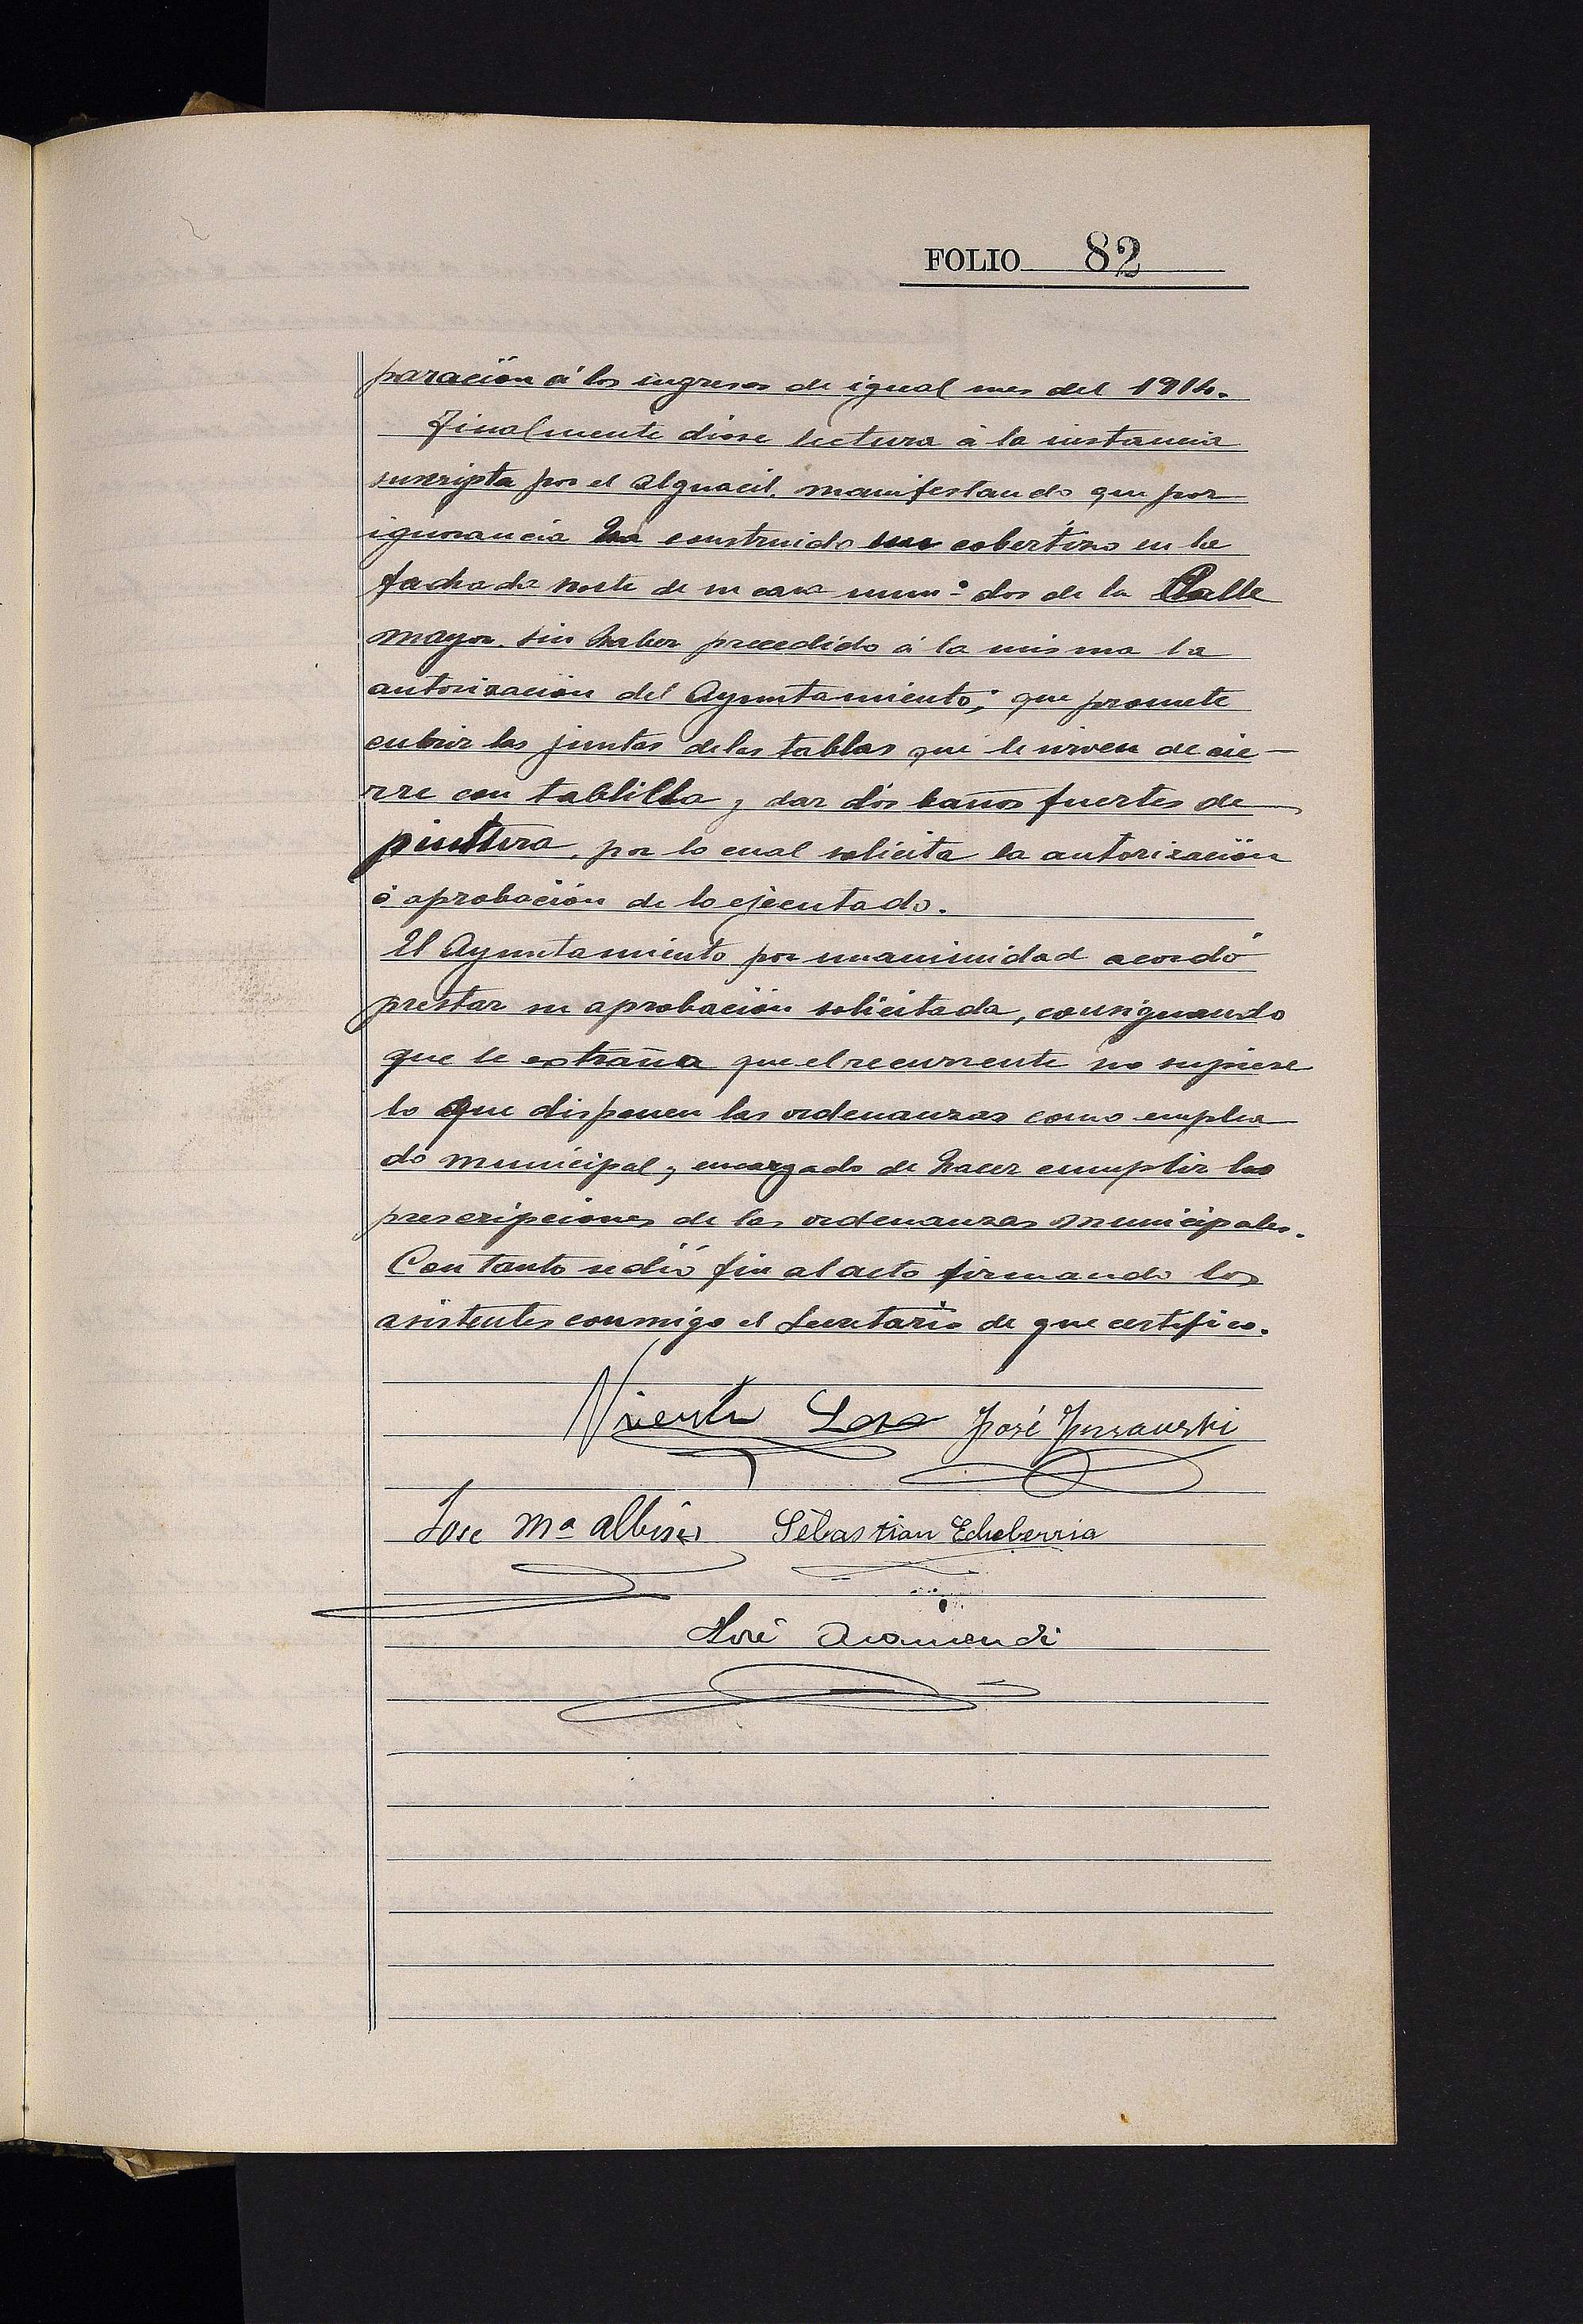 FOLIO 82
paración á los ingresos de igual mes del 1914.
Finalmente diose lectura á la instancia
suscripta por el Alguacil, manifestando que por
ignorancia ha construido un cobertizo en la
fachada norte de su casa num.º dos de la Calle
mayor, sin haber precedido á la misma la
autorización del Ayuntamiento; que promete
cubrir las juntas de las tablas que le sirven de cie-
rre con tablilla y dar dos baños fuertes de
pintura, por lo cual solicita la autorización
ó aprobación de lo ejecutado.
El Ayuntamiento por unanimidad acordó
prestar su aprobación solicitada, consignando
que le extraña que el recurrente no supiese
lo que disponen las ordenanzas como emplea
do municipal y encargado de hacer cumplir las
prescripciones de las ordenanzas municipales.
Con tanto se dió fin al acto firmando los
asistentes conmigo el Secretario de que certifico.
Vicente Lasa José
Jose Mª Albisu Sebastian Echeberria
José Aramendi